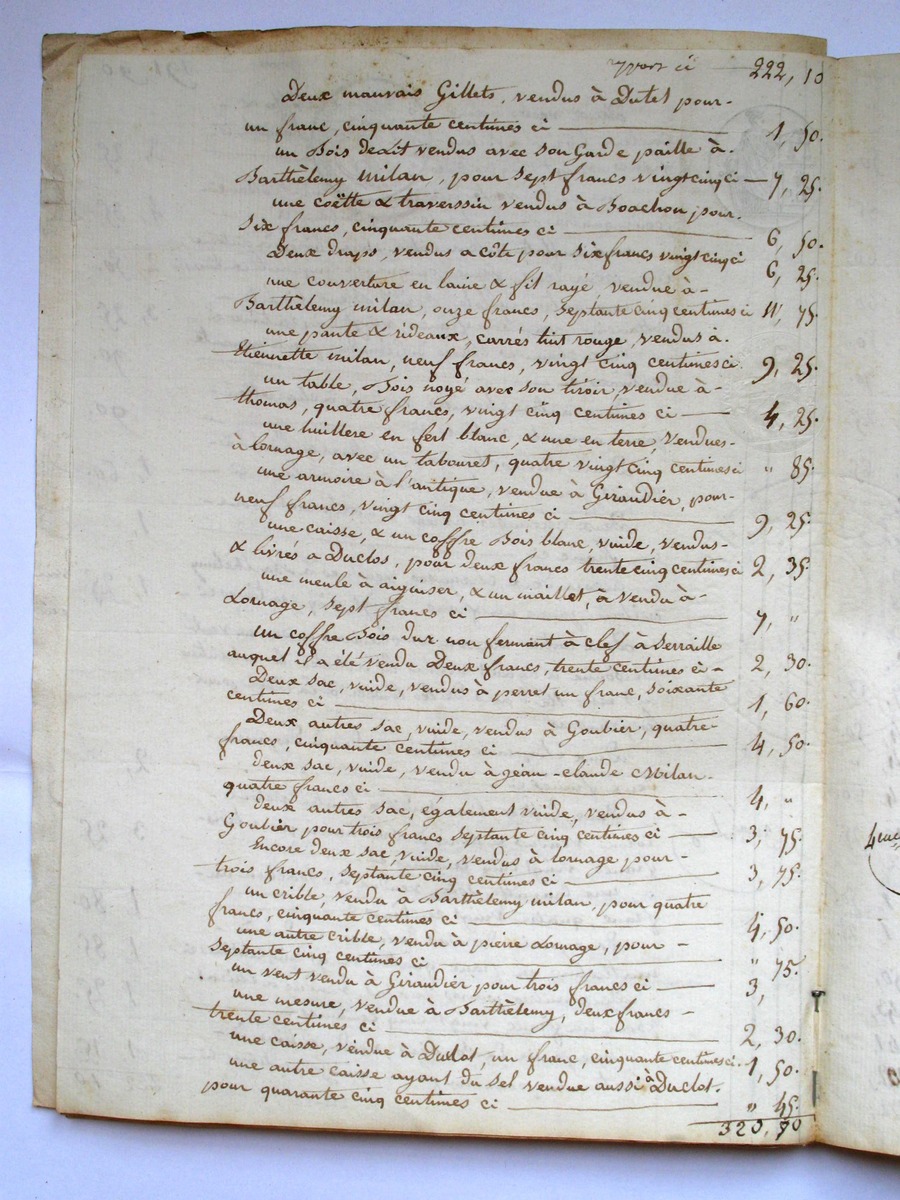 report ci 222, 10
Deux mauvais Gillets, vendus à Dutel pour-
un franc, cinquante centimes ci — 1, 50.
un Bois de Lit vendus avec son Garde paille à.
Barthèlemy milan, pour sept francs vingt cinq ci — 7, 25.
une coëtte & traverssin vendus à Boachon pour.
six francs, cinquante centimes ci — 6, 50.
Deux draps, vendus a côte pour six francs vingt cinq ci 6, 25.
une couverture en laine & fil rayé, vendue à-
Barthèlemy milan, onze francs, septante cinq centimes ci 11, 75.
une pante & rideaux, carrés tint rouge, vendus à.
Etiennette milan, neuf francs, vingt cinq centimes ci. 9, 25.
un table, Bois noyé avec son tiroir, vendue à-
thomas, quatre francs, vingt cinq centimes ci — 4, 25.
une huillere en fert blanc, & une en terre, vendues-
à lornage, avec un tabouret, quatre vingt cinq centimes ci " 85.
une armoire à l'antique, vendue à Giraudier, pour-
neuf francs, vingt cinq centimes ci — 9, 25.
une caisse, & un coffre Bois blanc, vuide, vendus-
& livrés a Duclos, pour deux francs trente cinq centimes ci 2, 35.
une meule à aiguiser, & un maillet, à vendu à-
Lornage, sept francs ci — 7, "
un coffre Bois dur non fermant à clef à Serraille
auquel il a été vendu Deux francs, trente centimes ci - 2, 30.
Deux sac, vuide, vendus à perret un franc, soixante
centimes ci — 1, 60.
Deux autres sac, vuide, vendus à Goubier, quatre
francs, cinquante centimes ci — 4, 50.
deux sac, vuide, vendu à jéan-claude Milan.
quatre francs ci — 4, "
deux autres sac, également vuide, vendus à-
Goubier pour trois francs septante cinq centimes ci — 3, 75.
Encore deux sac, vuide, vendus à lornage pour-
trois francs, septante cinq centimes ci — 3, 75.
un crible, vendu à Barthèlemy milan, pour quatre
francs, cinquante centimes ci — 4, 50.
une autre crible, vendu à pierre Lornage, pour -
septante cinq centimes ci — " 75.
un vent vendu à Giraudier pour trois francs ci — 3,
une mesure, vendue à Barthèlemy, deux francs -
trente centimes ci — 2, 30.
une caisse, vendue à Duclot, un franc, cinquante centimes ci. 1, 50.
une autre caisse ayant du sel vendue aussi à Duclot.
pour quarante cinq centimes ci — " 45.
320, 70